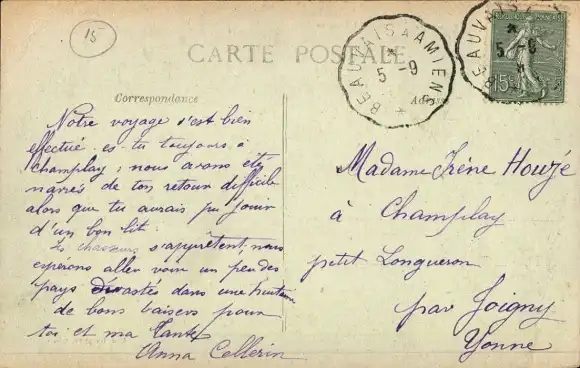 15
CARTE POSTALE
BEAUVAIS A AMIENS
5 -9
BEAUVAIS A
5 -9
15c
Correspondance
Notre voyage s'est bien
effectué. es-tu toujours à
Champlay ; nous avons été
navrés de ton retour difficile
alors que tu aurais pu jouir
d'un bon lit.
Les chasseurs s'apprêtent, nous
esperons aller voir un peu des
pays dévastés dans une
de bons baisers pour
toi et ma tante
Anna Cellerin
Madame Irène Houzé
à Champlay
petit Longueron
par Joigny
Yonne